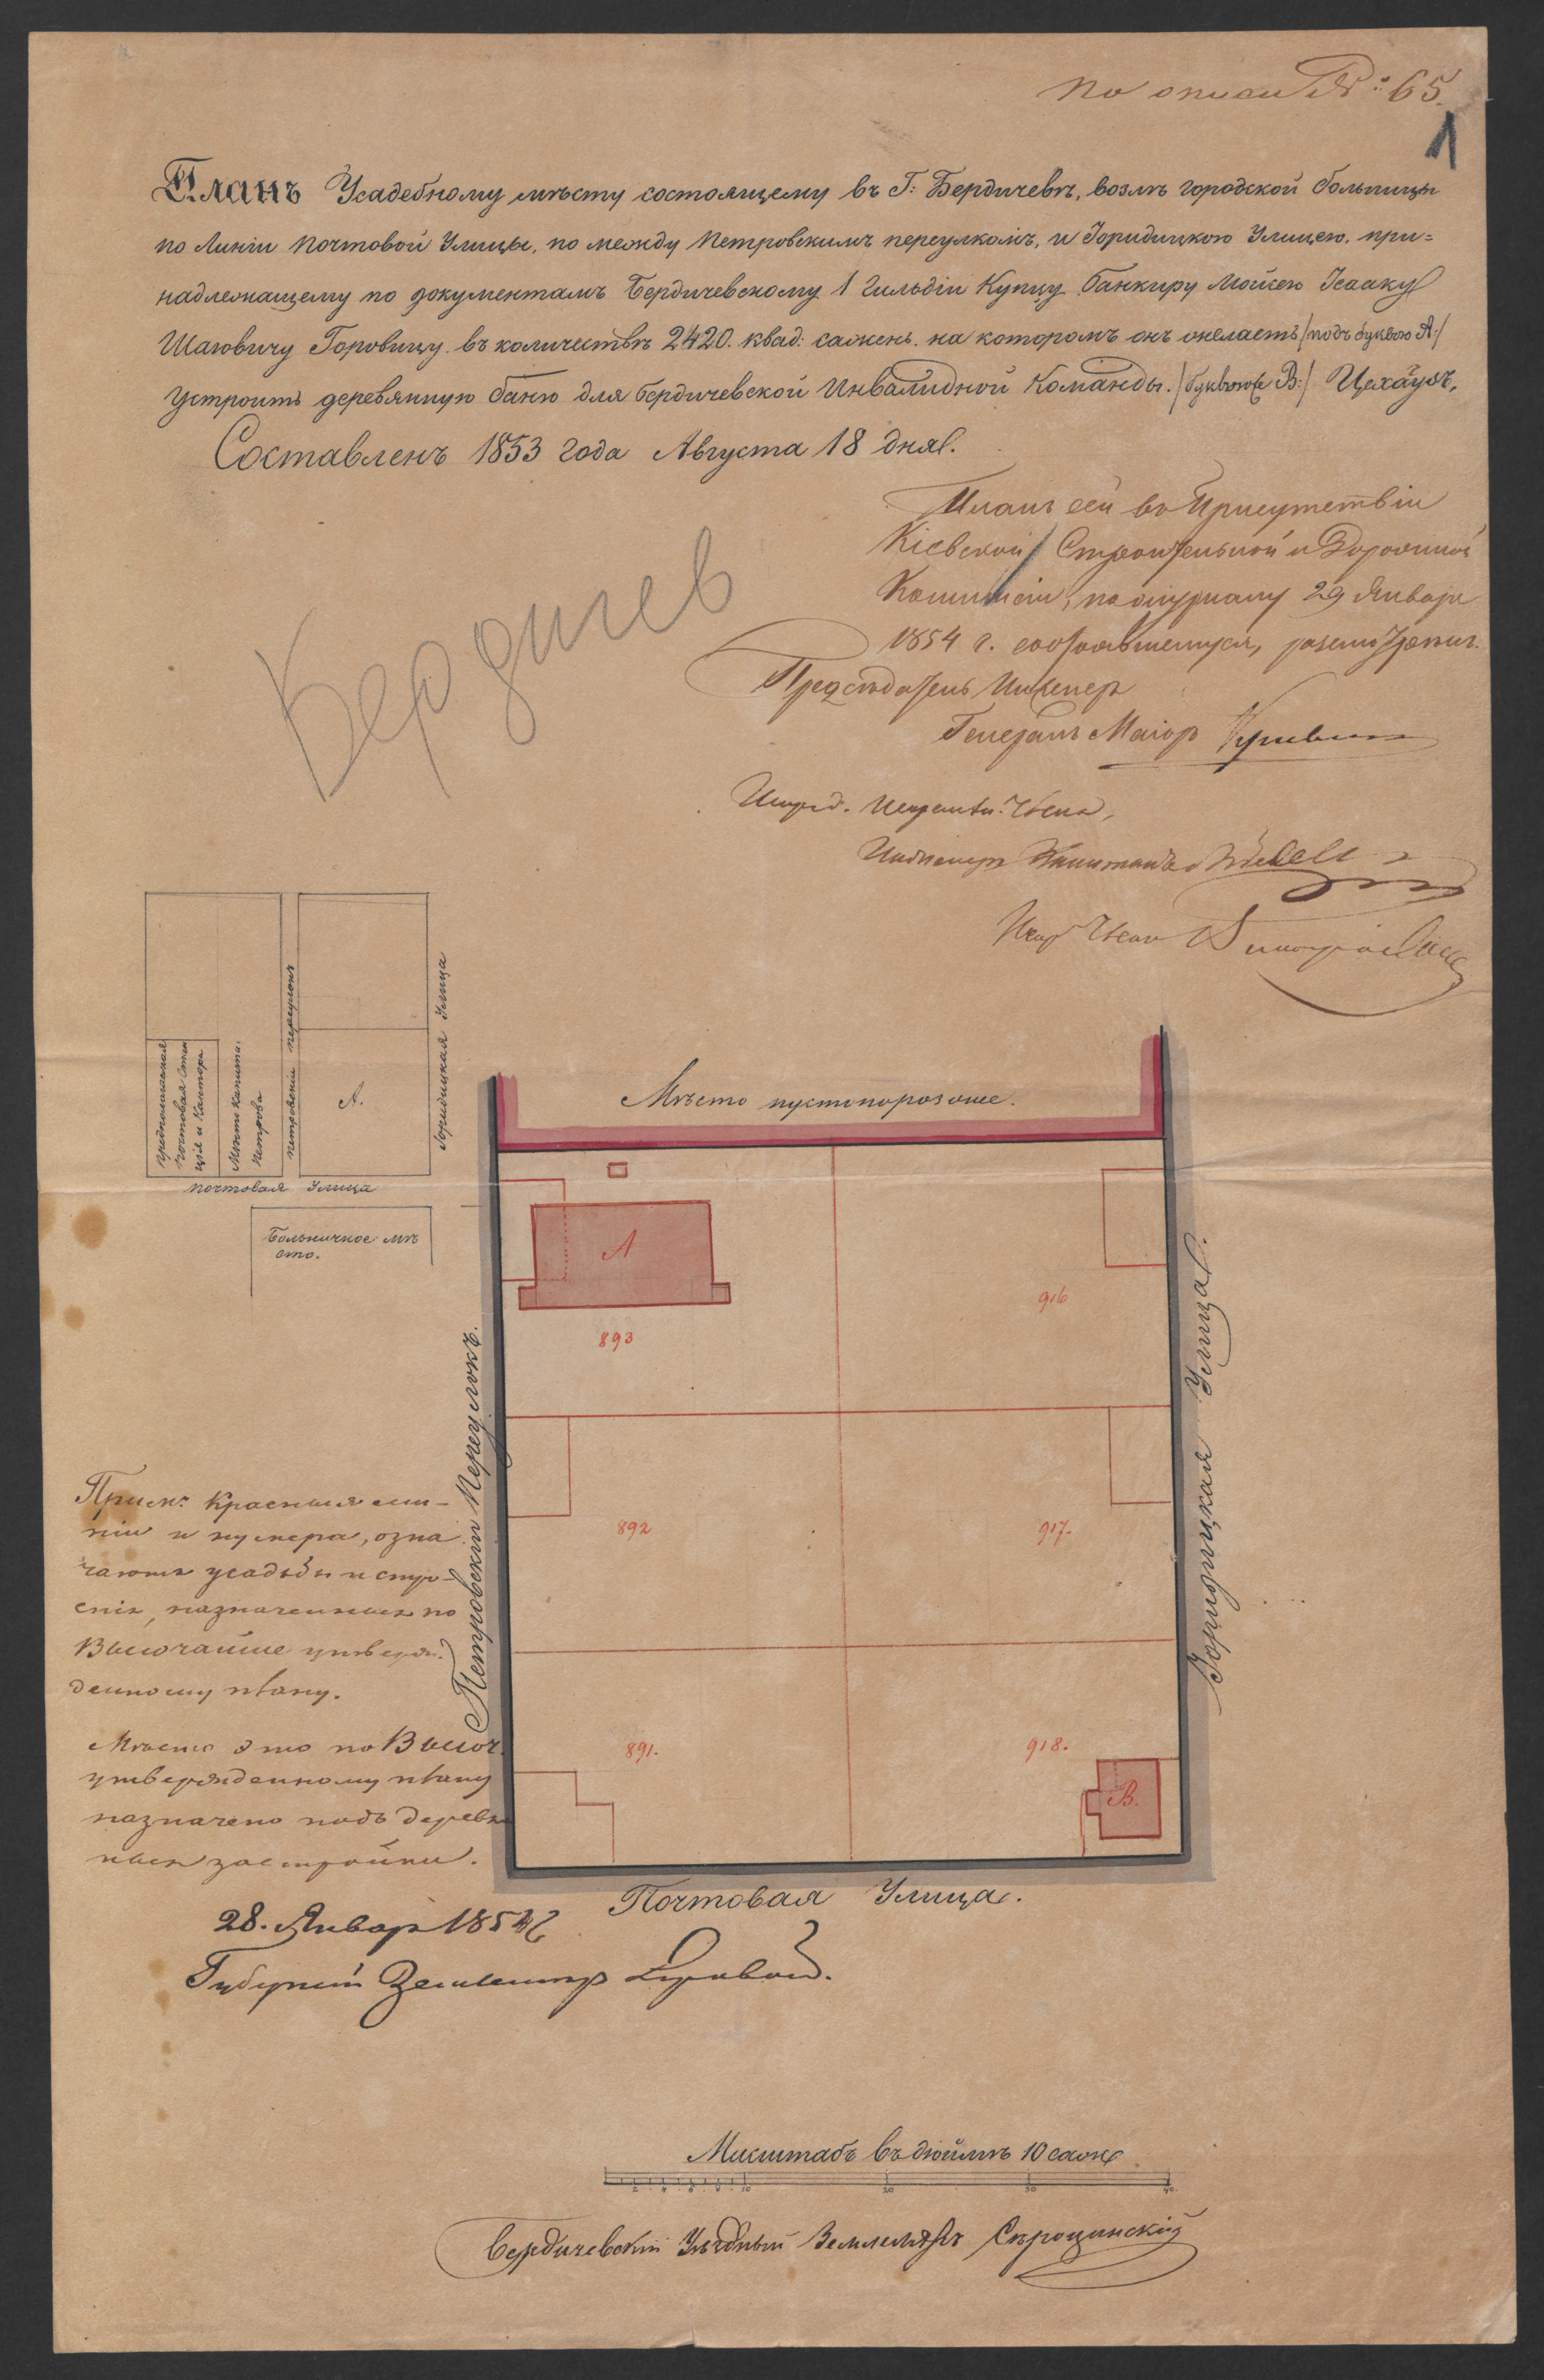 по описи №: 65.
1
Планъ Усадебному мѣсту состоящему въ Г: Бердичевѣ, возлѣ городской больницы
по Линіи Почтовой Улицы, по между Петровскимъ переулкомъ, и Юридицкою Улицею. при=
надлежащему по документамъ Бердичевскому 1 Гильдіи Купцу Банкиру Мойсею Исааку
Шаговичу Горовицу въ количествѣ 2420. квад: сажень. на которомъ онъ желаетъ /подъ буквою А:/
Устроить деревянную баню для Бердичевской Инвалидной Команды. /буквою В:/ Цехаузъ,
Составленъ 1853 Года Августа 18 дня.
Планъ сей въ Присутствіи
Кіевской Строительной и Дорожной
Коммисіи, по журналу 29 Января
1854 г. состоявшемуся, разсмотренъ.
Предсѣдатель Инженеръ
Генералъ Маіоръ
Бердичев
Инженеръ Капитанъ
Петровскій переулокъ
Юридицкая Улица
предполагаемая
почтовая стан
ція и Кантора
Мѣсто Капита.
Петрова
А.
Почтовая Улица
Больничное мѣ
сто.
Мѣсто пустопорозжее.
А
893
916
892
917.
891.
918.
В.
Петровскій Переулокъ.
Юридицкая Улица.
Почтовая Улица.
Прим: Красныя ли-
ніи и нумера, озна
чаютъ усадьбы и стро-
енія, назначенныя по
Высочайше утверж-
денному плану.
Мѣсто это по Высоч.
утвержденному плану
назначено подъ деревя
ныя застройки.
28. Января 1854
Губерн Землемѣръ
Масштабъ въ дюймѣ 10 саж
2 4 6 8 10 20 30 40.
Бердичевскій Уѣздный Землемѣръ Сѣроцинскій